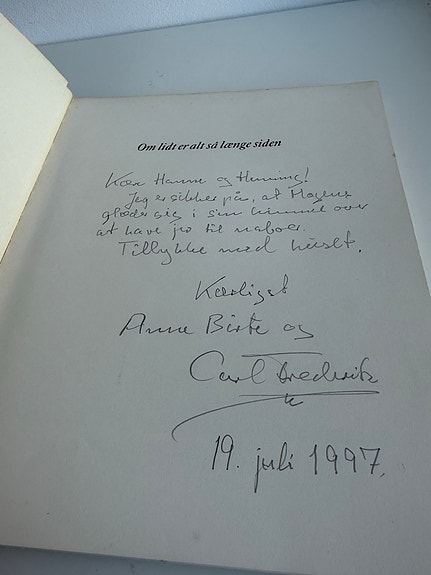 Om lidt er alt så længe siden
Kære Hanne og Henning!
Jeg er sikker på, at Mogens
glæder sig i sin himmel over
at have jer til naboer.
Tillykke med huset.
Kærligst
Anne Birte og
Carl Frederik
19. juli 1997.